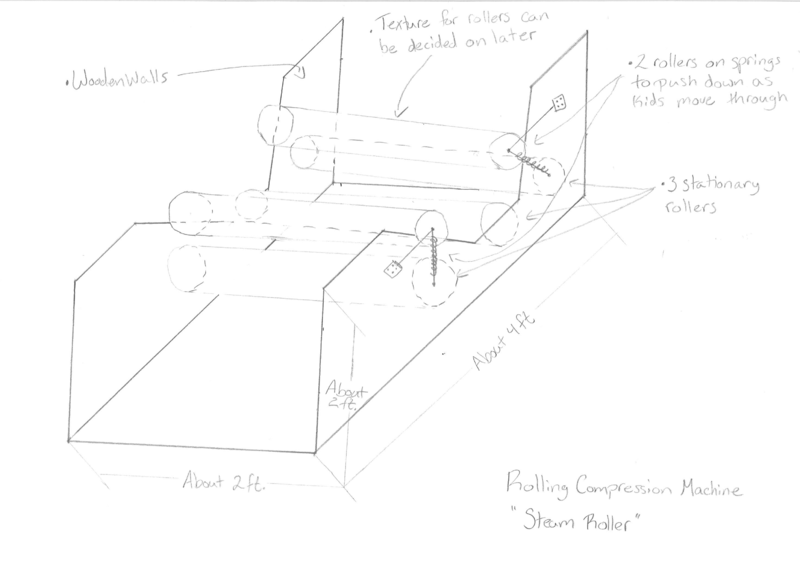 • Texture for rollers can
be decided on later
• Wooden Walls
• 2 rollers on springs
to push down as
kids move through
• 3 stationary
rollers
About 4ft
About
2ft.
About 2ft.
Rolling Compression Machine
"Steam Roller"